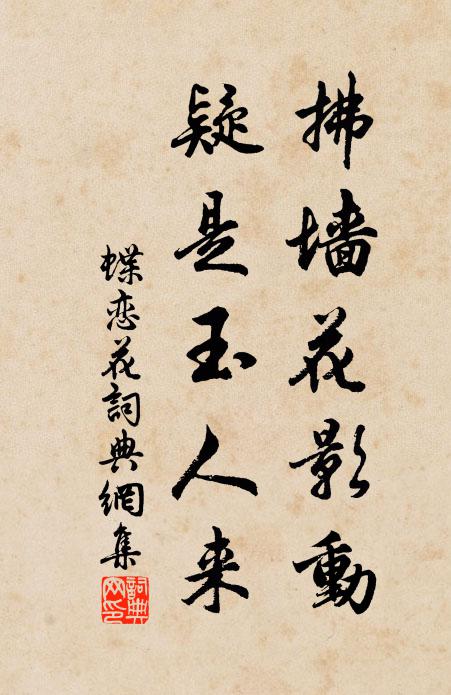 拂墙花影動
疑是玉人来
蝶恋花詞典網集
詞典網印